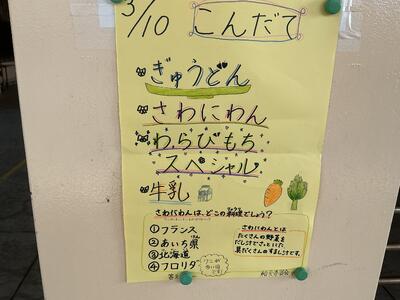 3/10 こんだて
ぎゅうどん
さわにわん
わらびもち
スペシャル
牛乳
さわにわんは、どこの料理でしょう?
①フランス
②あいち県
③北海道
④フロリダ
さわにわんとは
たくさんの野菜を
具だくさんのすましじるです。